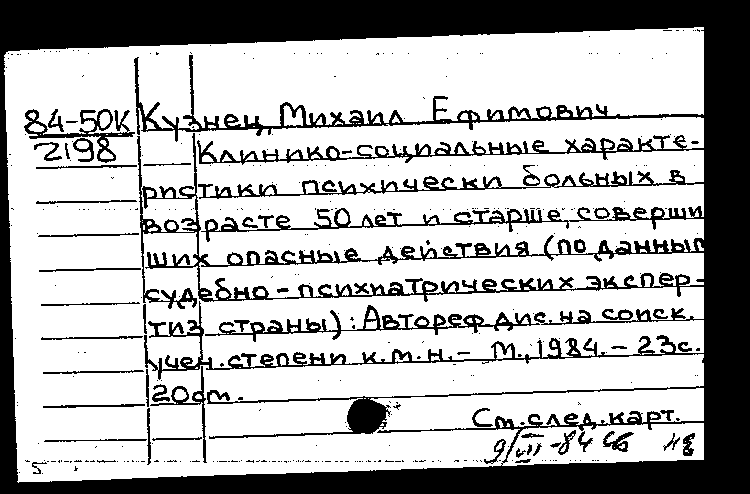 84-50К Кузнец, Михаил Ефимович.
2198 Клинико-социальные характе-
ристики психически больных в
возрасте 50 лет и старше, соверши
ших опасные действия (по данным
судебно-психиатрических экспер-
тиз страны): Автореф.дис.на соиск.
учен.степени к.м.н.- М., 1984.- 23с.,
20см.
См.след.карт.
9/VII-84